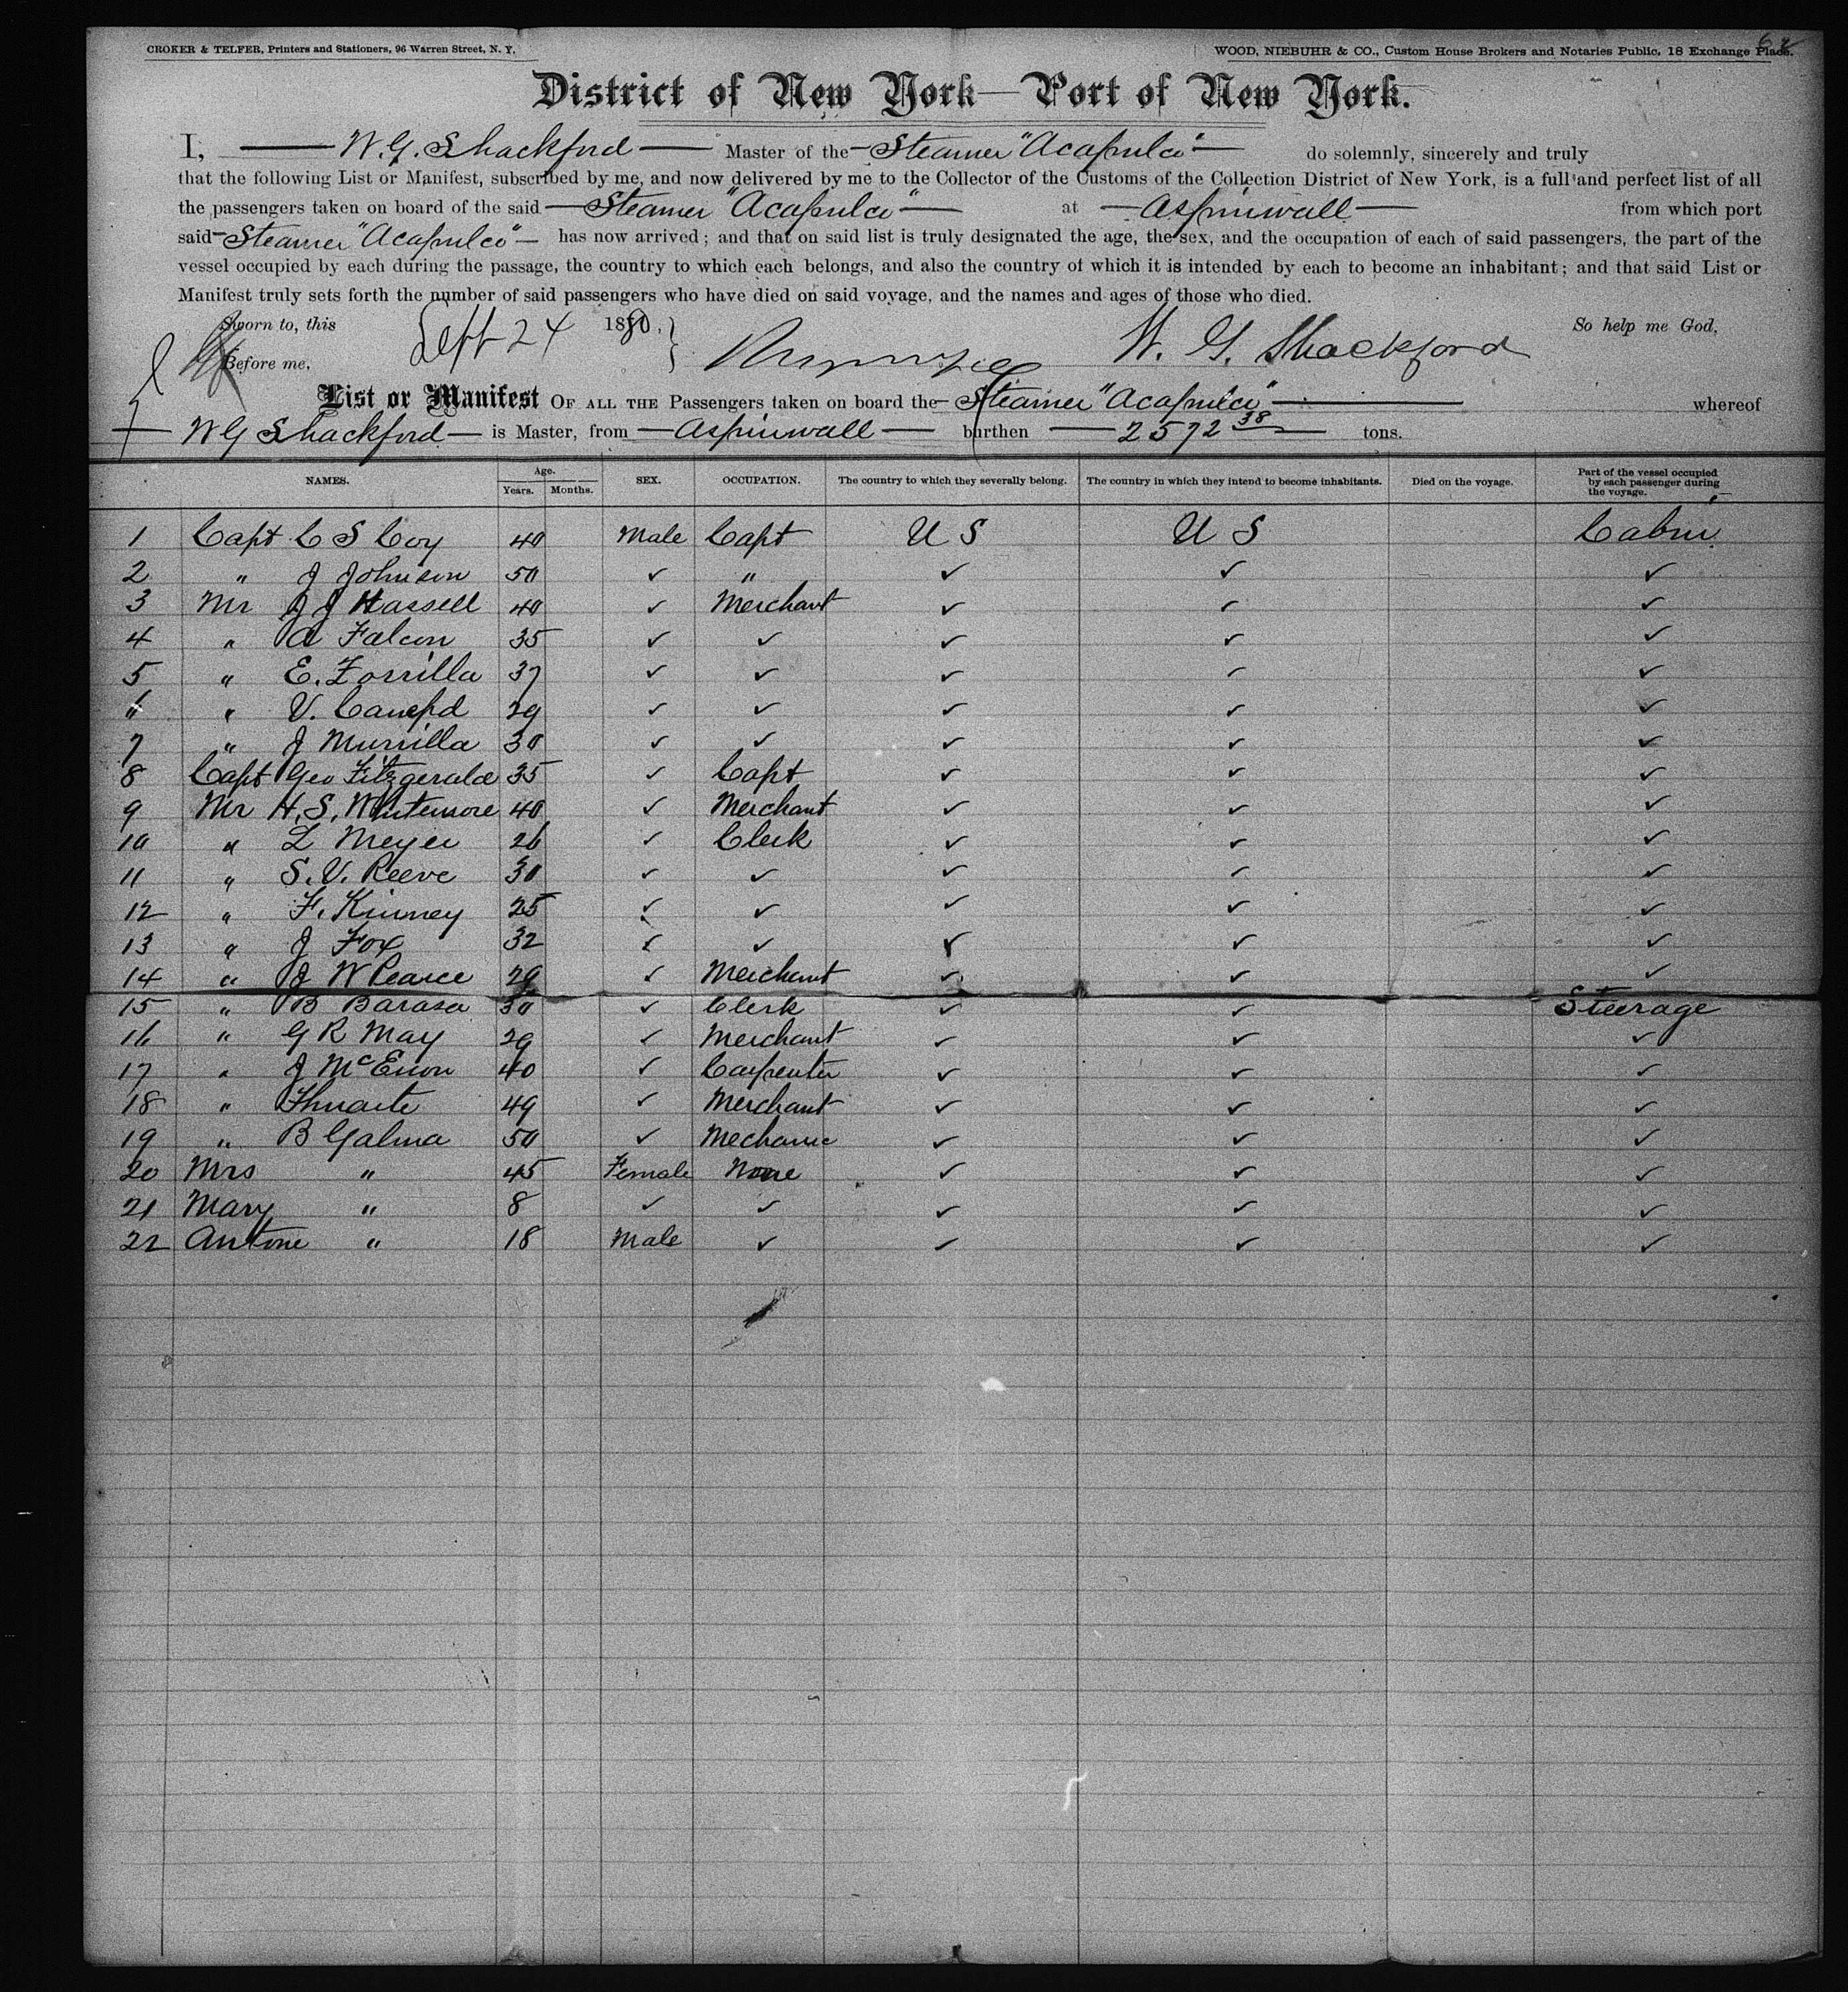 CROKER & TELFER, Printers and Stationers, 96 Warren Street, N. Y.
WOOD, NIEBUHR & CO., Custom House Brokers and Notaries Public, 18 Exchange Place.
District of New York—Port of New York.
I, W. G. Shackford Master of the Steamer "Acapulco" do solemnly, sincerely and truly
that the following List or Manifest, subscribed by me, and now delivered by me to the Collector of the Customs of the Collection District of New York, is a full and perfect list of all
the passengers taken on board of the said Steamer "Acapulco" at Aspinwall from which port
said Steamer "Acapulco" has now arrived; and that on said list is truly designated the age, the sex, and the occupation of each of said passengers, the part of the
vessel occupied by each during the passage, the country to which each belongs, and also the country of which it is intended by each to become an inhabitant; and that said List or
Manifest truly sets forth the number of said passengers who have died on said voyage, and the names and ages of those who died.
Sworn to, this Sept 24 1880, So help me God,
Before me, W. G. Shackford
List or Manifest OF ALL THE Passengers taken on board the Steamer "Acapulco" whereof
W G Shackford is Master, from Aspinwall burthen 2572 38 tons.
NAMES. Age. Years. Months. SEX. OCCUPATION. The country to which they severally belong. The country in which they intend to become inhabitants. Died on the voyage. Part of the vessel occupied by each passenger during the voyage.
1 Capt C S Coy 40 Male Capt U S U S Cabin
2 " J Johnson 50 ✓ " ✓ ✓ ✓
3 Mr J J Hassell 40 ✓ Merchant ✓ ✓ ✓
4 " A Falcon 35 ✓ ✓ ✓ ✓ ✓
5 " E. Zorrilla 37 ✓ ✓ ✓ ✓ ✓
6 " V. 29 ✓ ✓ ✓ ✓ ✓
7 " J Murrilla 30 ✓ ✓ ✓ ✓ ✓
8 Capt Geo Fitzgerald 35 ✓ Capt ✓ ✓ ✓
9 Mr H. S. Whitemore 40 ✓ Merchant ✓ ✓ ✓
10 " L Meyer 26 ✓ Clerk ✓ ✓ ✓
11 " S. V. Reeve 30 ✓ ✓ ✓ ✓ ✓
12 " F. Kinney 25 ✓ ✓ ✓ ✓ ✓
13 " J Fox 32 ✓ ✓ ✓ ✓ ✓
14 " J W Pearce 29 ✓ Merchant ✓ ✓ ✓
15 " B Barasa 30 ✓ Clerk ✓ ✓ Steerage
16 " G R May 29 ✓ Merchant ✓ ✓ ✓
17 " J 40 ✓ Carpenter ✓ ✓ ✓
18 " Thwaite 49 ✓ Merchant ✓ ✓ ✓
19 " B Galma 50 ✓ Mechanic ✓ ✓ ✓
20 Mrs " 45 Female None ✓ ✓ ✓
21 Mary " 8 ✓ ✓ ✓ ✓ ✓
22 Antone " 18 Male ✓ ✓ ✓ ✓